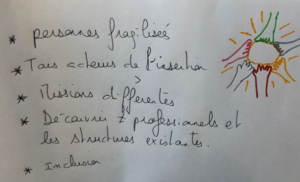 * personnes fragilisées
* Tous acteurs de l'insertion
* Missions différentes
* Découvrir professionnels et
les structures existantes.
* Inclusion